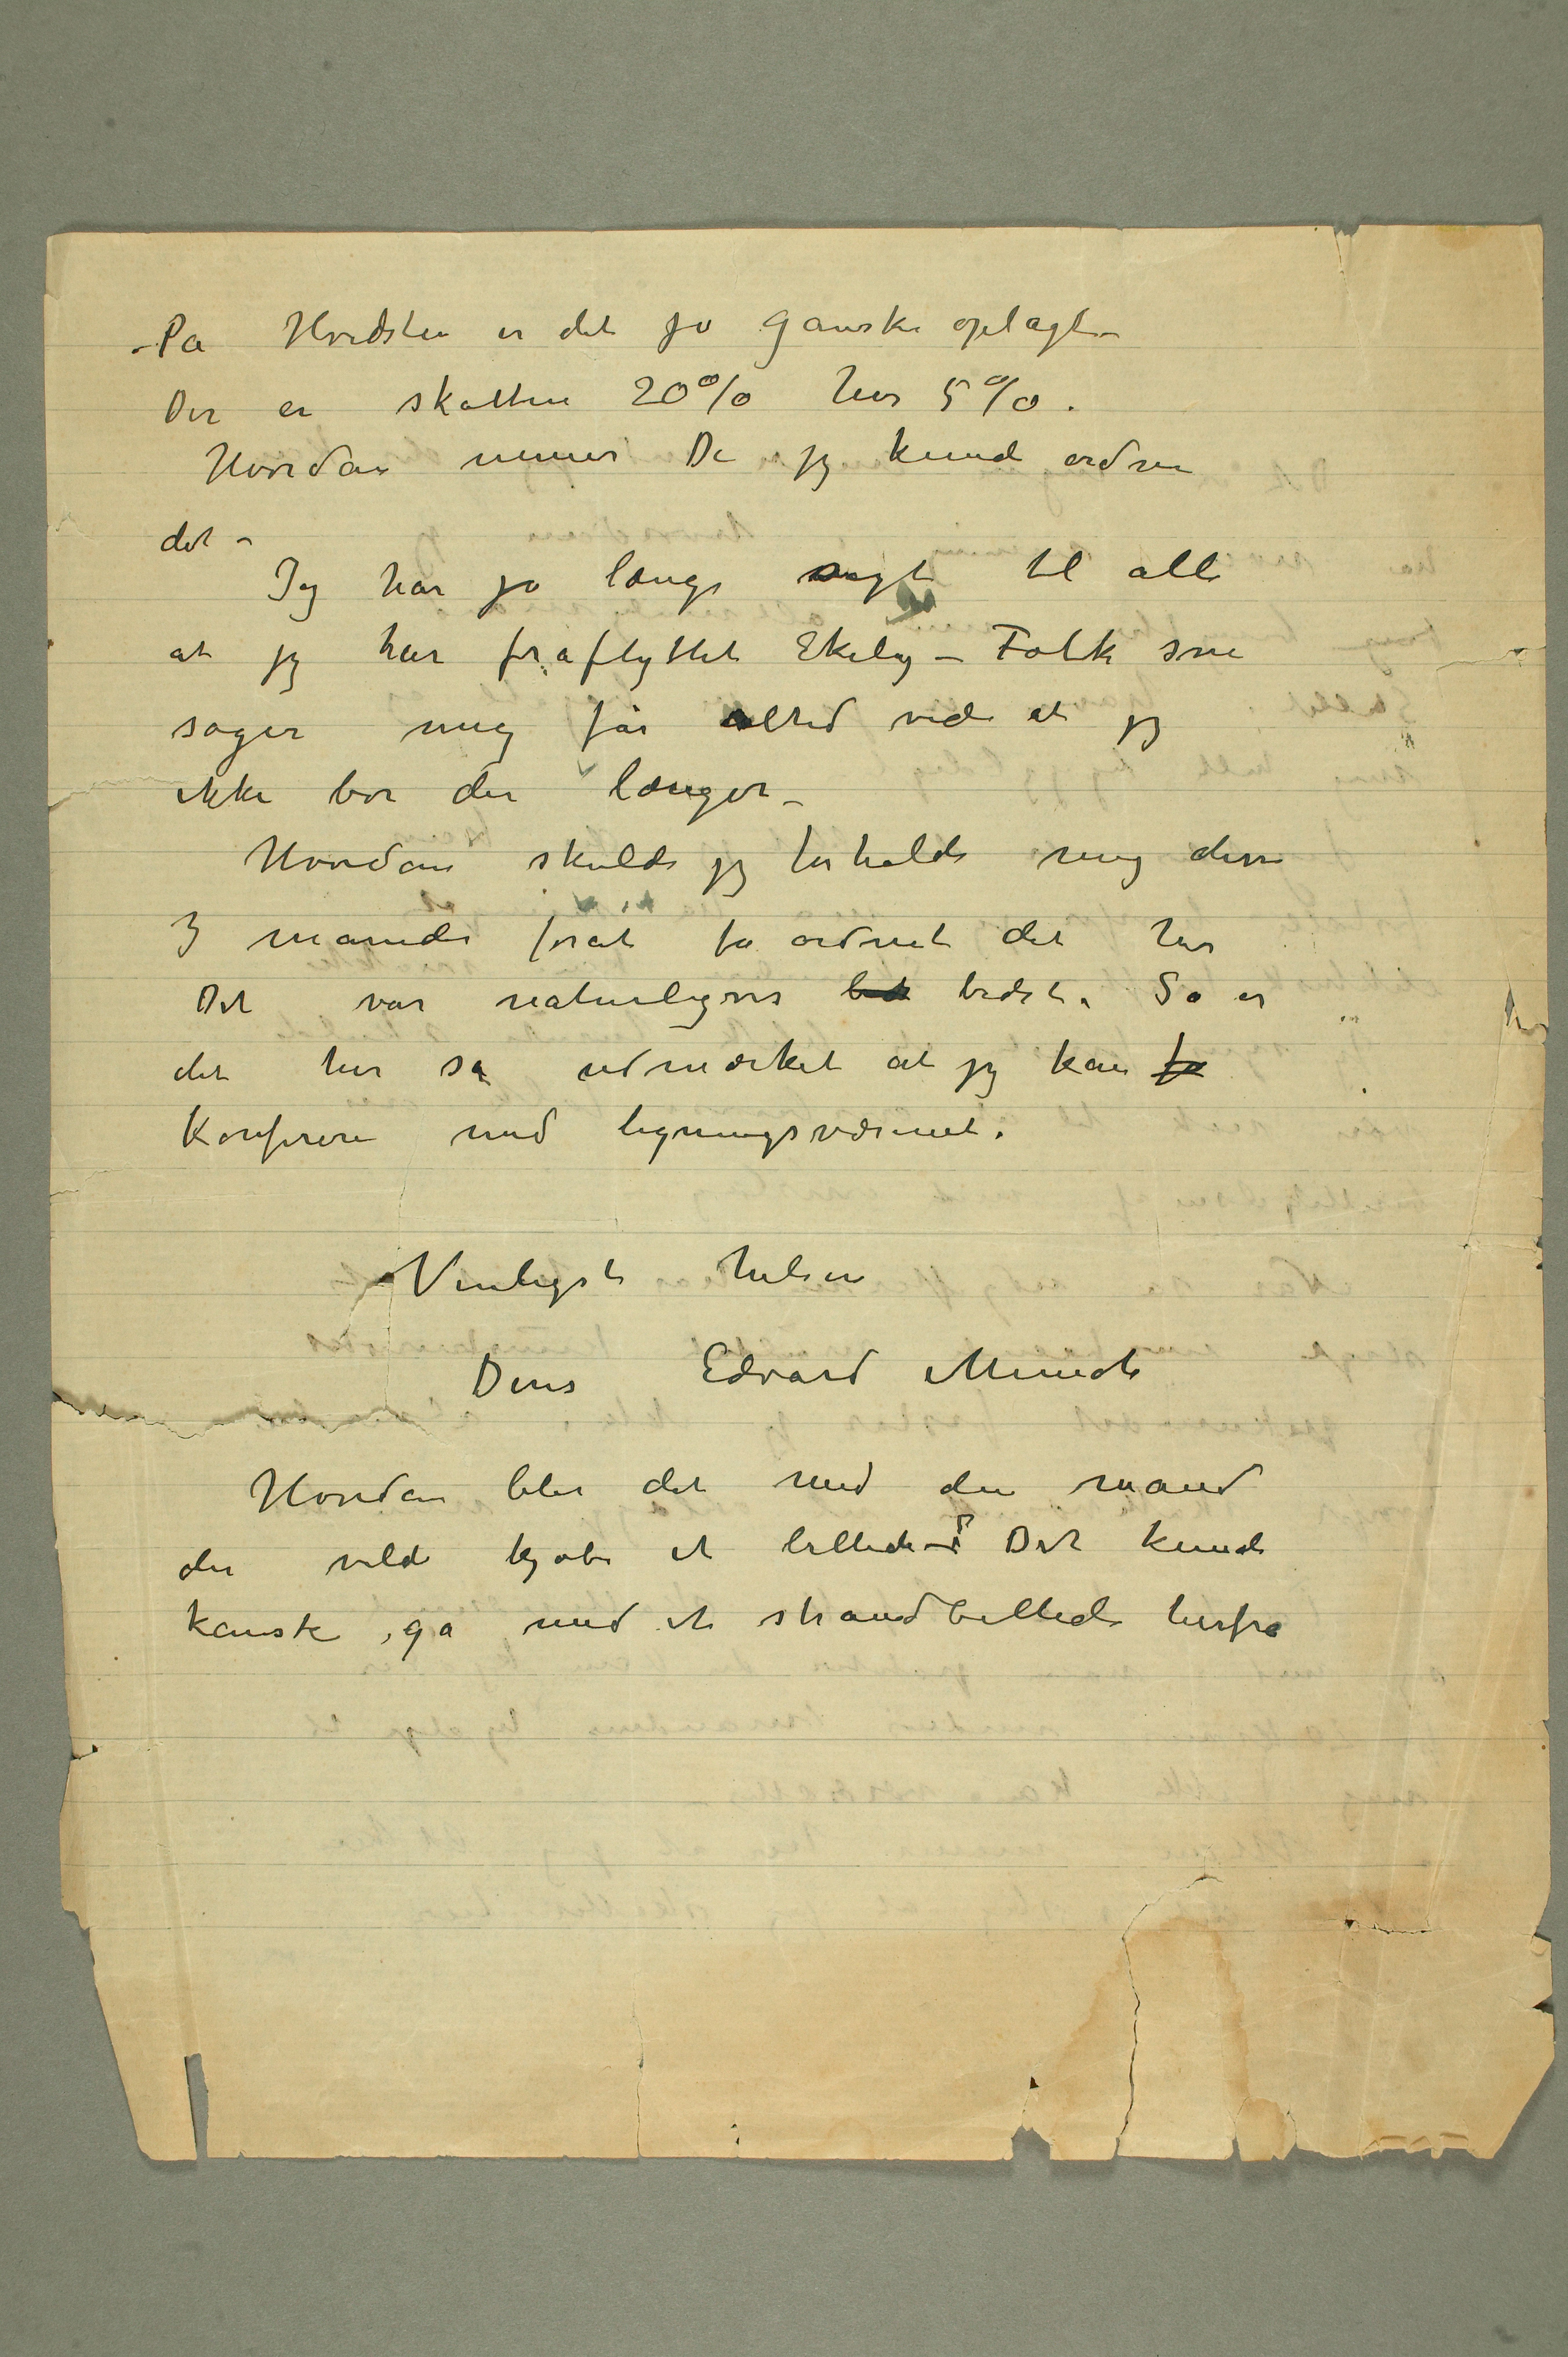 – På Hvidsten er det jo ganske oplagt –
Der er skatten 20% her 5%.
Hvordan mener De jeg kunde ordne
det –
Jeg har jo længe sagt til alle
at jeg har fraflyttet Ekely – Folk som
søger mig får altid vide at jeg
ikke bor der længer –
Hvordan skulde jeg forholde mig disse
3 måneder forat få ordnet det her
Det var naturligvis bedst. Så er
det her så udmærket at jeg kan
konferere med ligningsvæsenet.
Venligst hilsen
Deres Edvard Munch
Hvordan blir det med den mand
der vilde kjøbe et billede – ? Det kunde
kanske gå med et strandbillede herfra